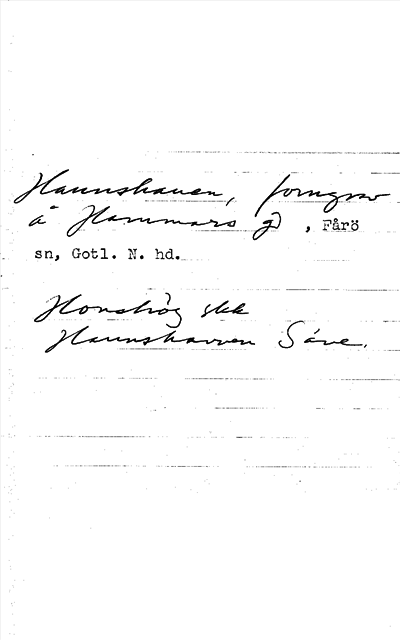 Haunshauen, forngrav
å Hammars gd , Fårö
sn, Gotl. N. hd.
Honshög skk
Haunshavven Säve.